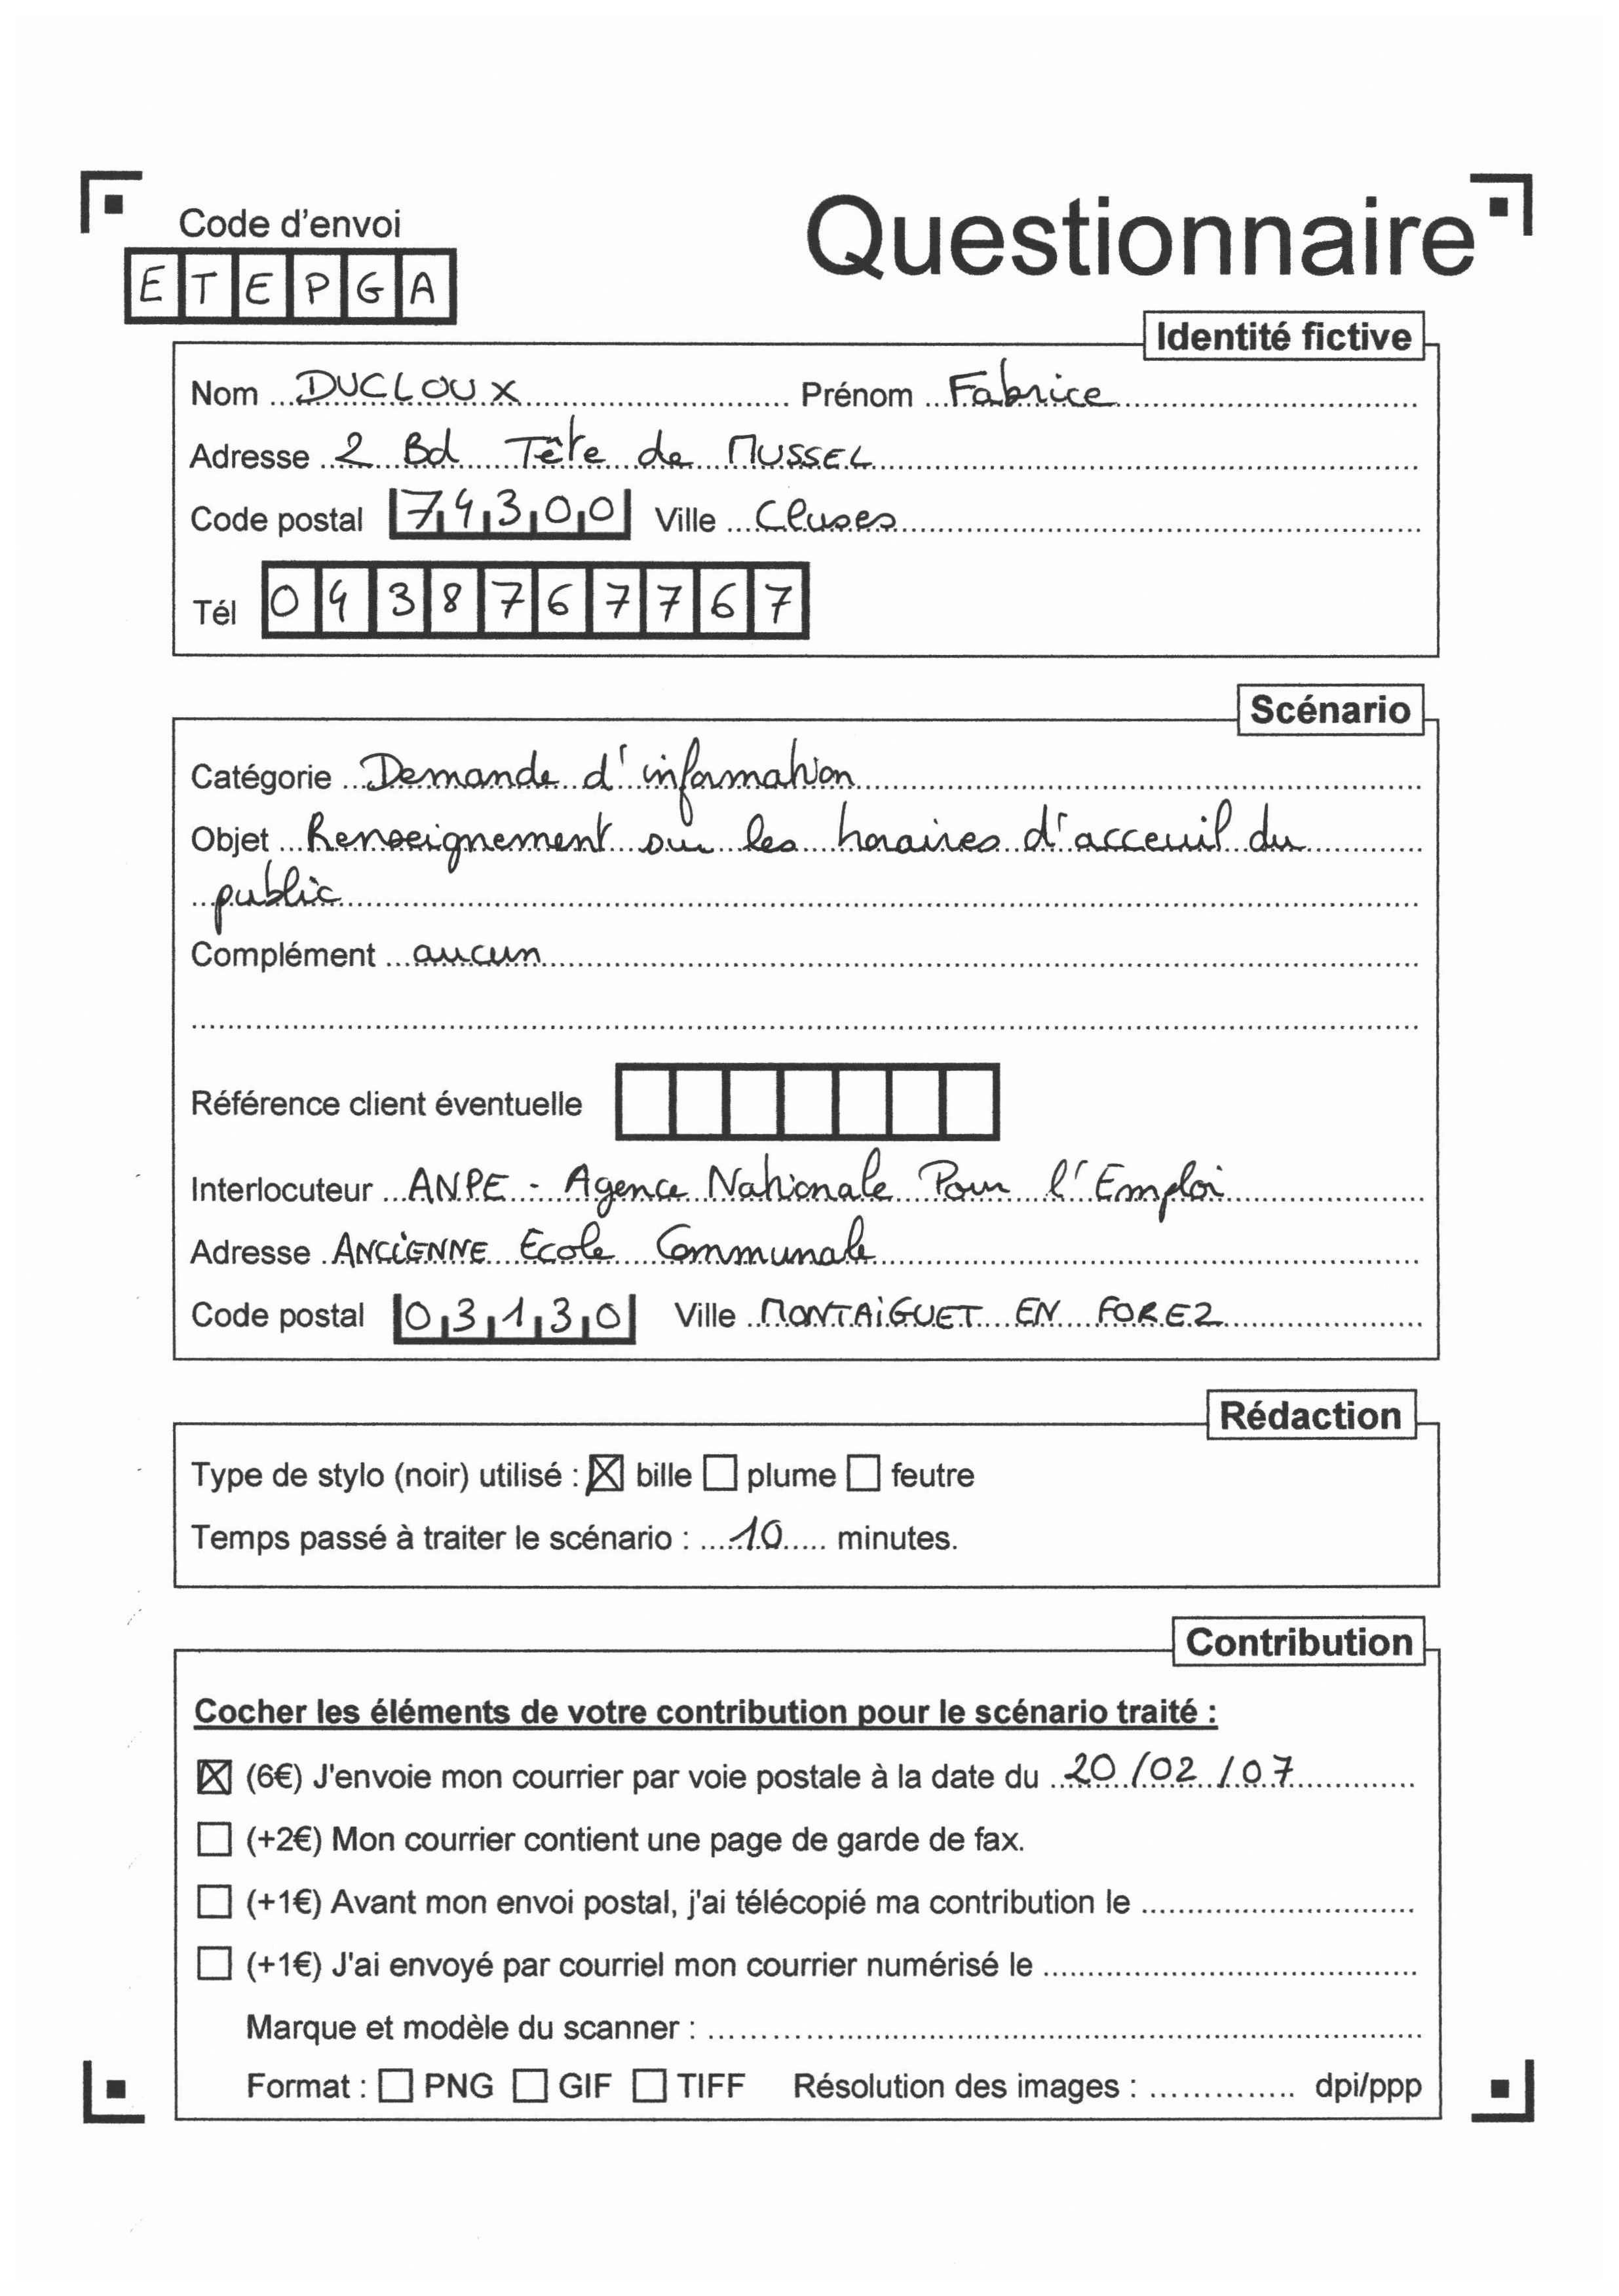 Code d'envoi
Questionnaire
E T E P G A
Identité fictive
Nom DUCLOUX Prénom Fabrice
Adresse 2 Bd Tête de MUSSEL
Code postal 74300 Ville Cluses
Tél 0438767767
Scénario
Catégorie Demande d'information
Objet Renseignement sur les horaires d'acceuil du
public
Complément aucun
Référence client éventuelle
Interlocuteur ANPE - Agence Nationale Pour l'Emploi
Adresse ANCIENNE Ecole Communale
Code postal 03130 Ville MONTAIGUET EN FOREZ
Rédaction
Type de stylo (noir) utilisé : ☒ bille ☐ plume ☐ feutre
Temps passé à traiter le scénario : 10 minutes.
Contribution
Cocher les éléments de votre contribution pour le scénario traité :
☒ (6€) J'envoie mon courrier par voie postale à la date du 20/02/07
☐ (+2€) Mon courrier contient une page de garde de fax.
☐ (+1€) Avant mon envoi postal, j'ai télécopié ma contribution le
☐ (+1€) J'ai envoyé par courriel mon courrier numérisé le
Marque et modèle du scanner :
Format : ☐ PNG ☐ GIF ☐ TIFF Résolution des images : dpi/ppp